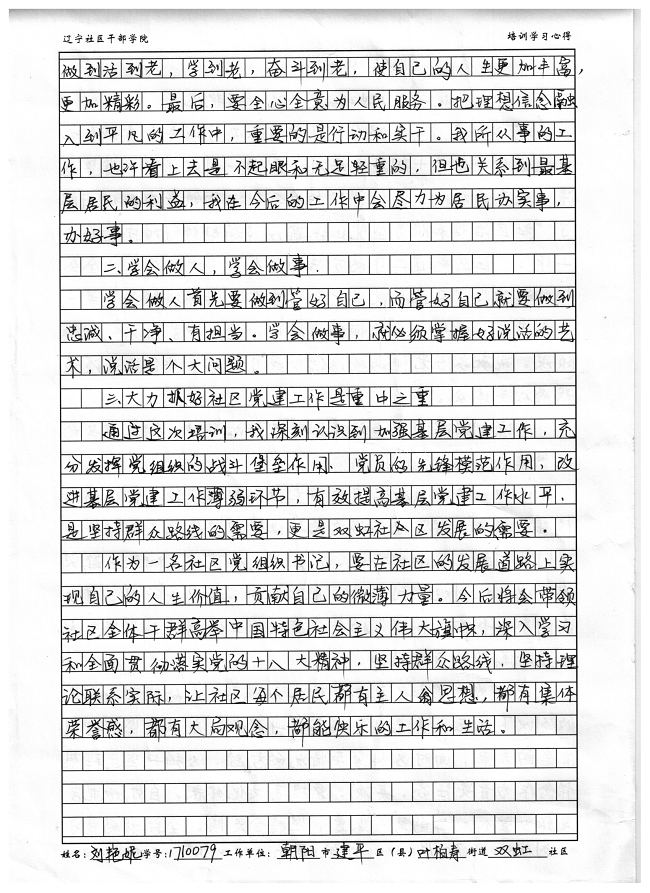 辽宁社区干部学院 培训学习心得
做到活到老，学到老，奋斗到老，使自己的人生更加丰富，
更加精彩。最后，要全心全意为人民服务。把理想信念融
入到平凡的工作中，重要的是行动和实干。我所从事的工
作，也许看上去是不起眼和无足轻重的，但也关系到最基
层居民的利益，我在今后的工作中会尽力为居民办实事，
办好事。
二、学会做人，学会做事．
学会做人首先要做到管好自己，而管好自己就要做到
忠诚、干净、有担当。学会做事，就必须掌握好说话的艺
术，说话是个大问题。
三、大力抓好社区党建工作是重中之重
通过这次培训，我深刻认识到加强基层党建工作，充
分发挥党组织的战斗堡垒作用、党员的先锋模范作用，改
进基层党建工作薄弱环节，有效提高基层党建工作水平，
是坚持群众路线的需要，更是双虹社区发展的需要。
作为一名社区党组织书记，要在社区的发展道路上实
现自己的人生价值，贡献自己的微薄力量。今后将会带领
社区全体干群高举中国特色社会主义伟大旗帜，深入学习
和全面贯彻落实党的十八大精神，坚持群众路线，坚持理
论联系实际，让社区每个居民都有主人翁思想，都有集体
荣誉感，都有大局观念，都能快乐的工作和生活。
姓名：刘艳妮 学号：1710079 工作单位：朝阳 市 建平 区（县） 叶柏寿 街道 双虹 社区